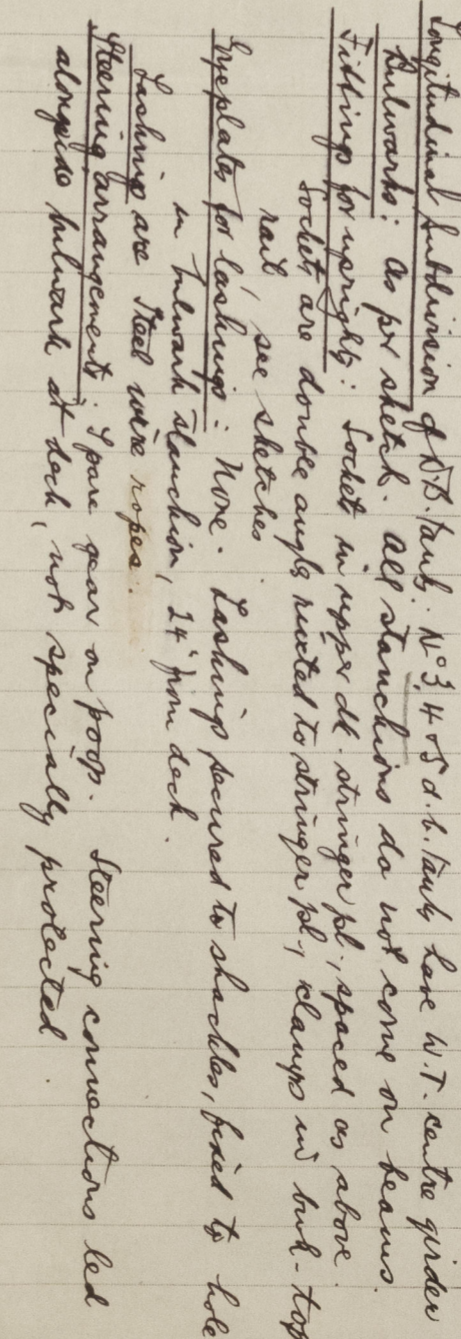 Longitudinal Subdivision of D.B. Tanks: No 3, 4 & 5 d.b. tanks have W.T. centre girder
Bulwarks: as per sketch. All stanchions do not come on beams.
Fittings for uprights: Sockets in upper dk. stringer pl., spaced as above.
Sockets are double angls riveted to stringer pl., clamps in bulk-top
rail, see sketches
Eyeplates for lashings: None. Lashings secured to shackles, fixed to hole
in bulwark stanchion, 24" from deck.
Lashings are Steel wire ropes.
Steering arrangements: Spare gear on poop. Steering connections led
alongside bulwark at deck, not specially protected.